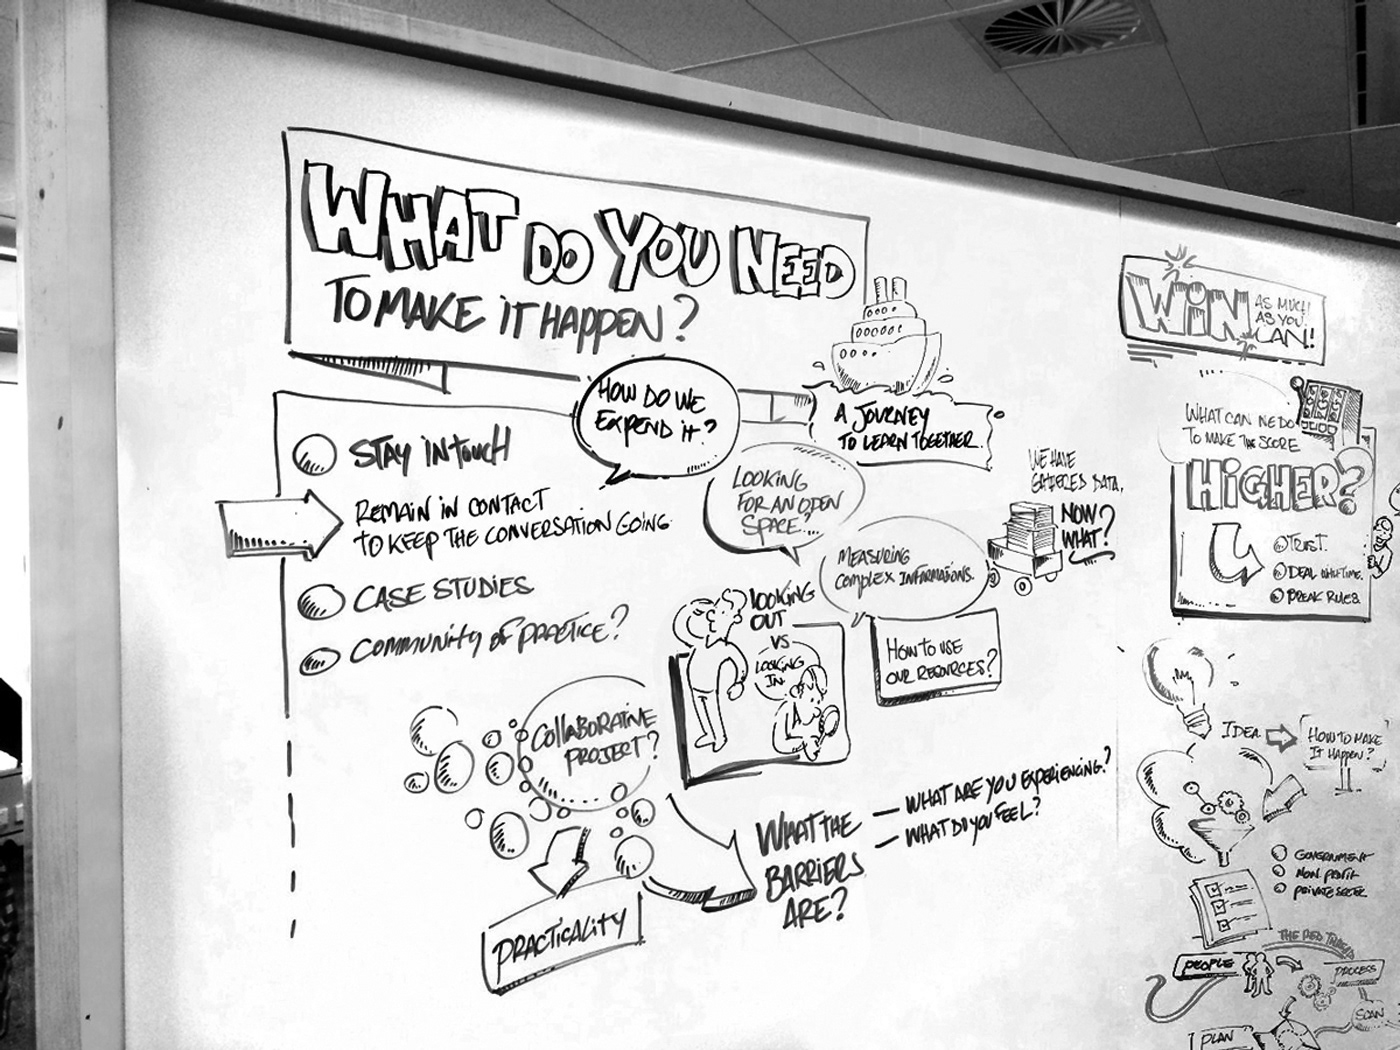 WHAT DO YOU NEED
TO MAKE IT HAPPEN?
HOW DO WE
EXPEND IT?
A JOURNEY
TO LEARN TOGETHER.
STAY IN TOUCH
REMAIN IN CONTACT
TO KEEP THE CONVERSATION GOING
CASE STUDIES
COMMUNITY OF PRACTICE?
LOOKING
FOR AN OPEN
SPACE?...
MEASURING
COMPLEX INFORMATIONS.
WE HAVE
GATHERED DATA,
NOW
WHAT?
LOOKING
OUT
VS
LOOKING
IN.
HOW TO USE
OUR RESOURCES?
COLLABORATIVE
PROJECT?
PRACTICALITY
WHAT THE
BARRIERS
ARE?
— WHAT ARE YOU EXPERIENCING?
— WHAT DO YOU FEEL?
WIN
AS MUCH
AS YOU
CAN!
WHAT CAN WE DO
TO MAKE THE SCORE
HIGHER?
TRUST.
DEAL WITH TIME.
BREAK RULES.
IDEA
HOW TO MAKE
IT HAPPEN?
GOVERNMENT
NON PROFIT
PRIVATE SECTOR
THE RED THREAD
PEOPLE
PROCESS
SCAN
PLAN